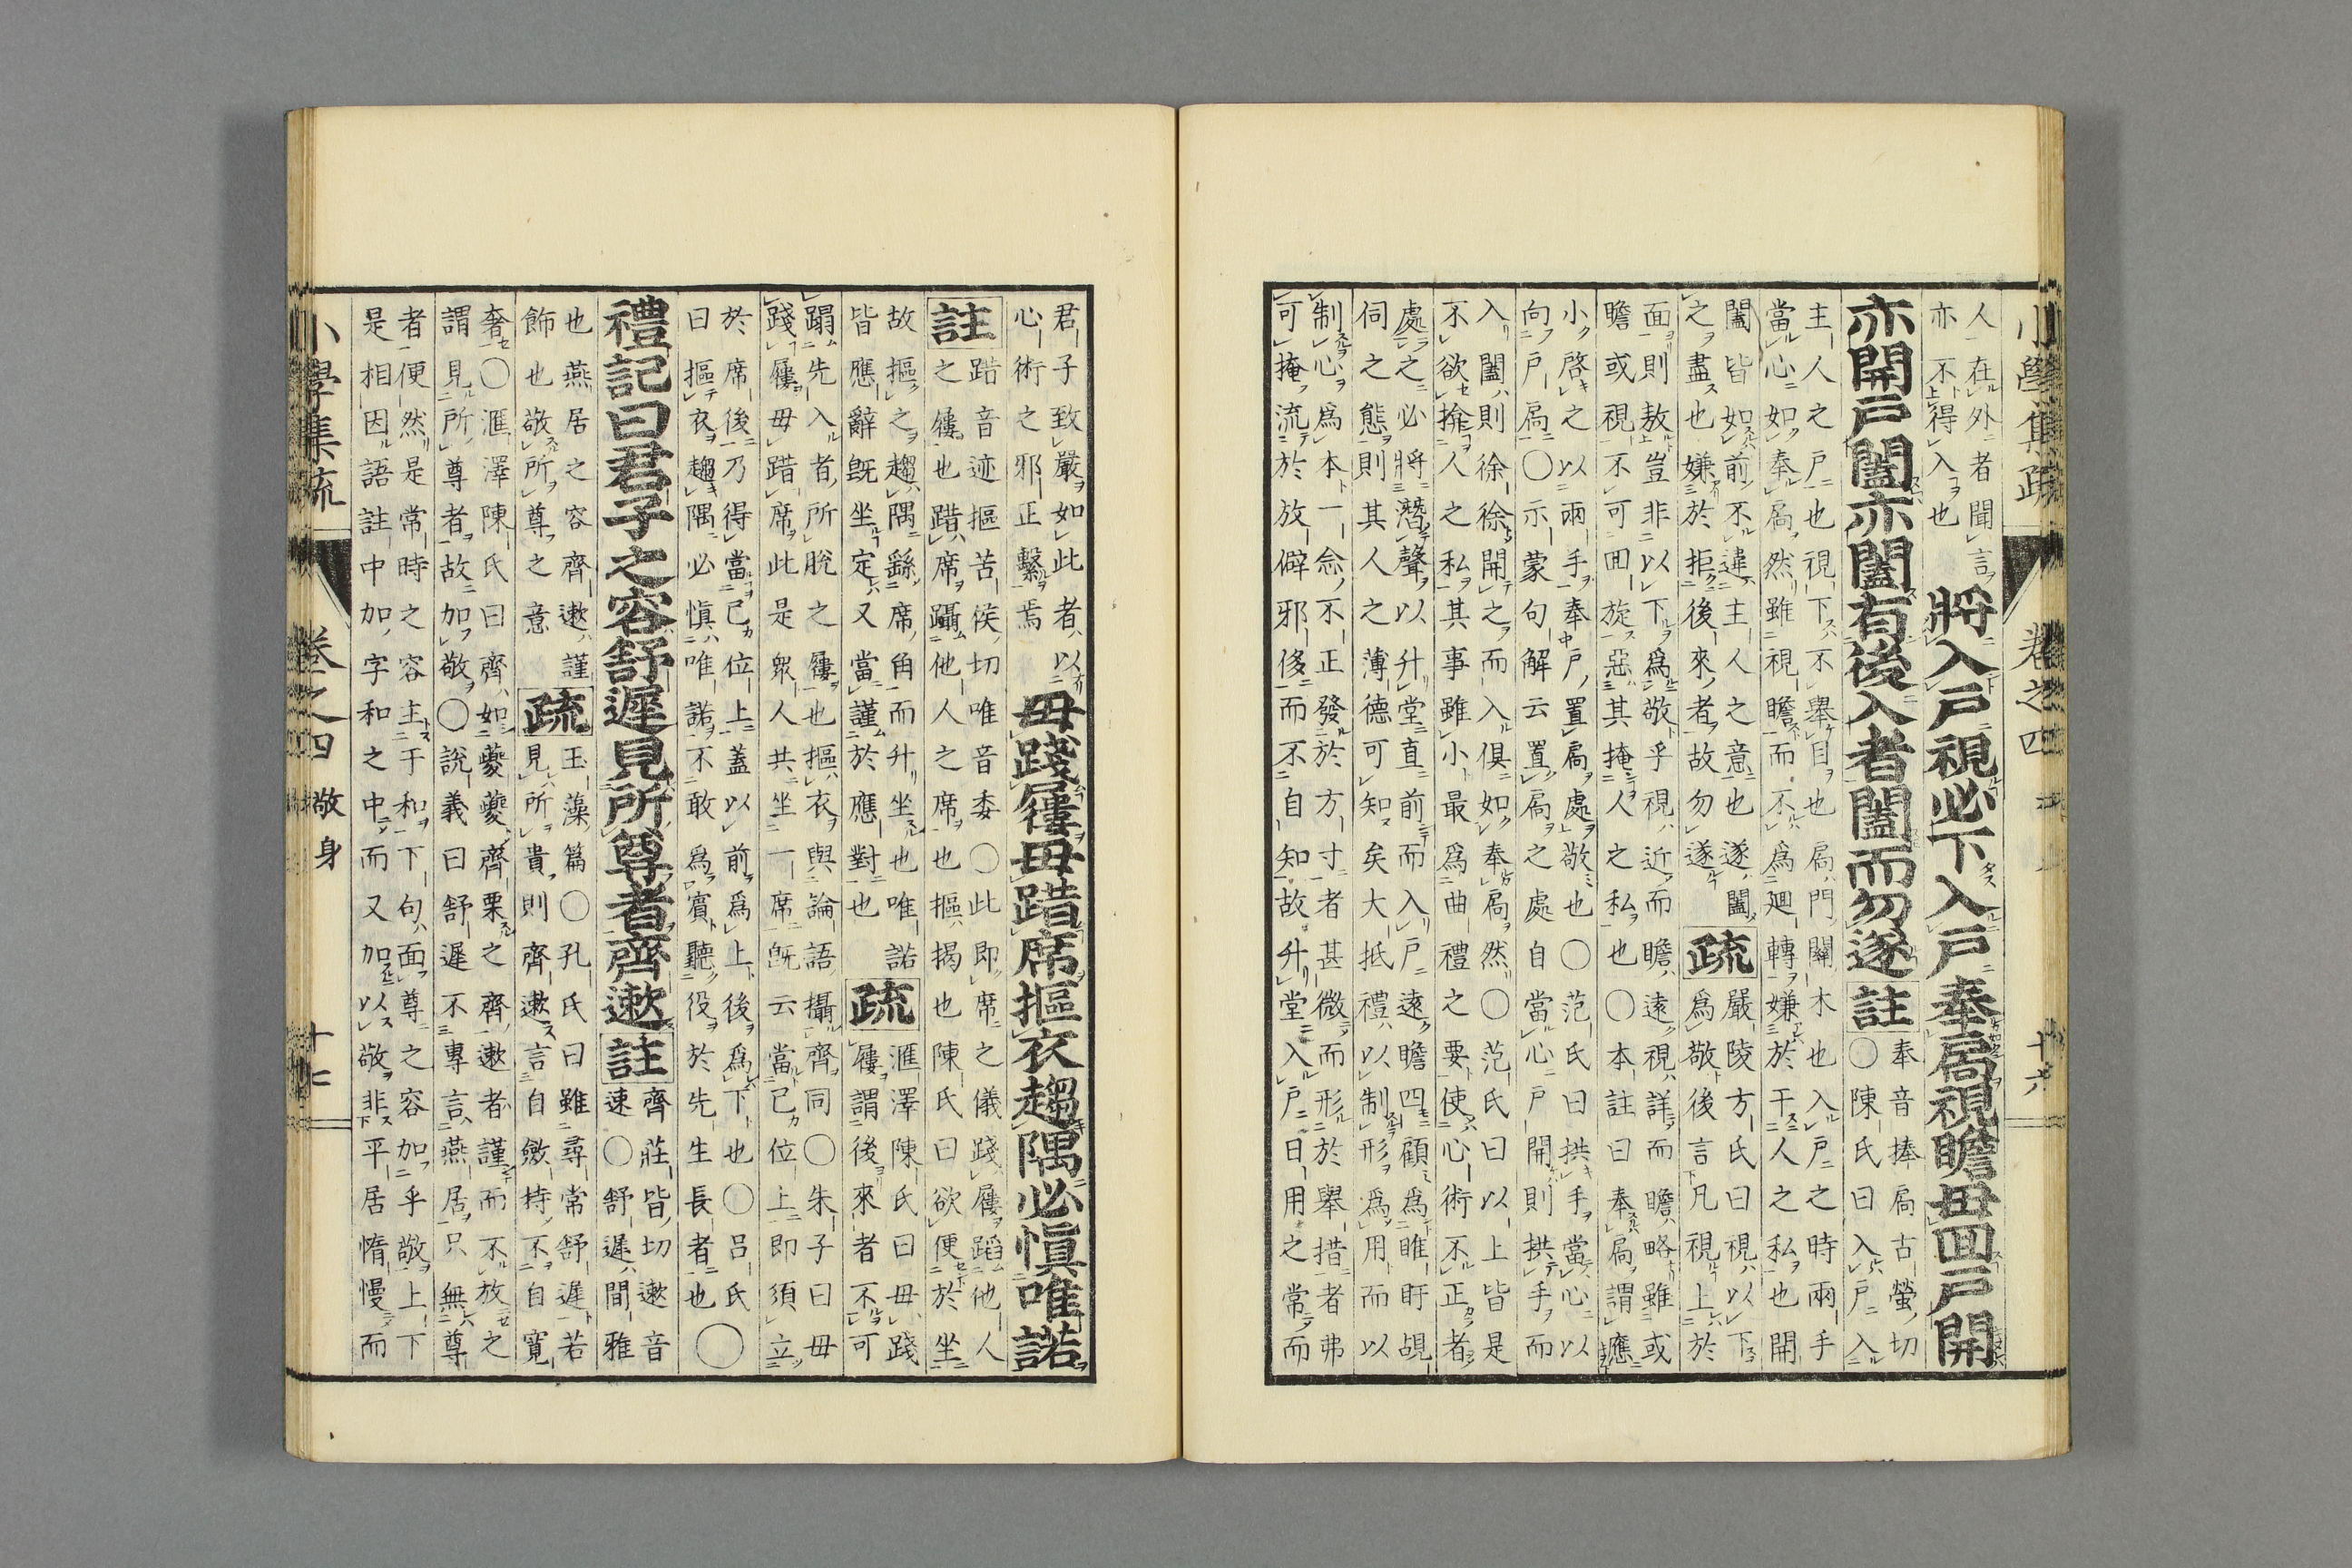 小學集疏 卷之四 十六
人在外者聞言
亦不得入也
將入戶視必下入戶奉扃視瞻毋回戶開
亦開戶闔亦闔有後入者闔而勿遂
註
奉音捧扃古螢切
○陳氏曰入戶入
主人之戶也視下不舉目也扃門關木也入戶之時兩手
當心如奉扃然雖視瞻而不爲廻轉嫌於干人之私也開
闔皆如前不違主人之意也遂闔
之盡也嫌於拒後來者故勿遂
疏
嚴陵方氏曰視以下
爲敬後言凡視上於
面則敖豈非以下爲敬乎視近而瞻遠視詳而瞻略雖或
瞻或視不可囬旋惡其掩人之私也○本註曰奉扃謂應
小啓之以兩手奉戶置扃處敬也○范氏曰拱手當心以
向戶扃○示蒙句解云置扃之處自當心戶開則拱手而
入闔則徐徐開之而入俱如奉扃然○范氏曰以上皆是
不欲揜人之私其事雖小最爲曲禮之要使心術不正者
處之必將潛聲以升堂直前而入戶遠瞻四顧爲睢盱覘
伺之態則其人之薄德可知矣大抵禮以制形爲用而以
制心爲本一念不正發於方寸者甚微而形於舉措者弗
可掩流於放僻邪侈而不自知故升堂入戶日用之常而
君子致嚴如此者以
心術之邪正繫焉
毋踐屨毋踖席摳衣趨隅必愼唯諾
註
踖音迹摳苦侯切唯音委○此即席之儀踐屨蹈他人
之屨也踖席躡他人之席也摳揭也陳氏曰欲便於坐
故摳之趨隅繇席角而升坐也唯諾
皆應辭旣坐定又當謹於應對也
疏
滙澤陳氏曰毋踐
屨謂後來者不可
蹋先入者所脫之屨也摳衣與論語攝齊同○朱子曰毋
踐屨毋踖席此是衆人共坐一席旣云當己位上即須立
於席後乃得當己位上蓋以前爲上後爲下也○呂氏
曰摳衣趨隅必愼唯諾不敢爲賓聽役於先生長者也○
禮記曰君子之容舒遲見所尊者齊遬
註
齊莊皆切遬音
速○舒遲間雅
也燕居之容齊遬謹
飾也敬所尊之意
疏
玉藻篇○孔氏曰雖尋常舒遲若
見所貴則齊遬言自斂持不自寬
奢○滙澤陳氏曰齊如夔夔齊栗之齊遬者謹而不放之
謂見所尊者故加敬○說義曰舒遲不專言燕居只無尊
者便然是常時之容主于和下句面尊之容加乎敬上下
是相因語註中加字和之中而又加以敬非平居惰慢而
小學集疏 卷之四 敬身 十七